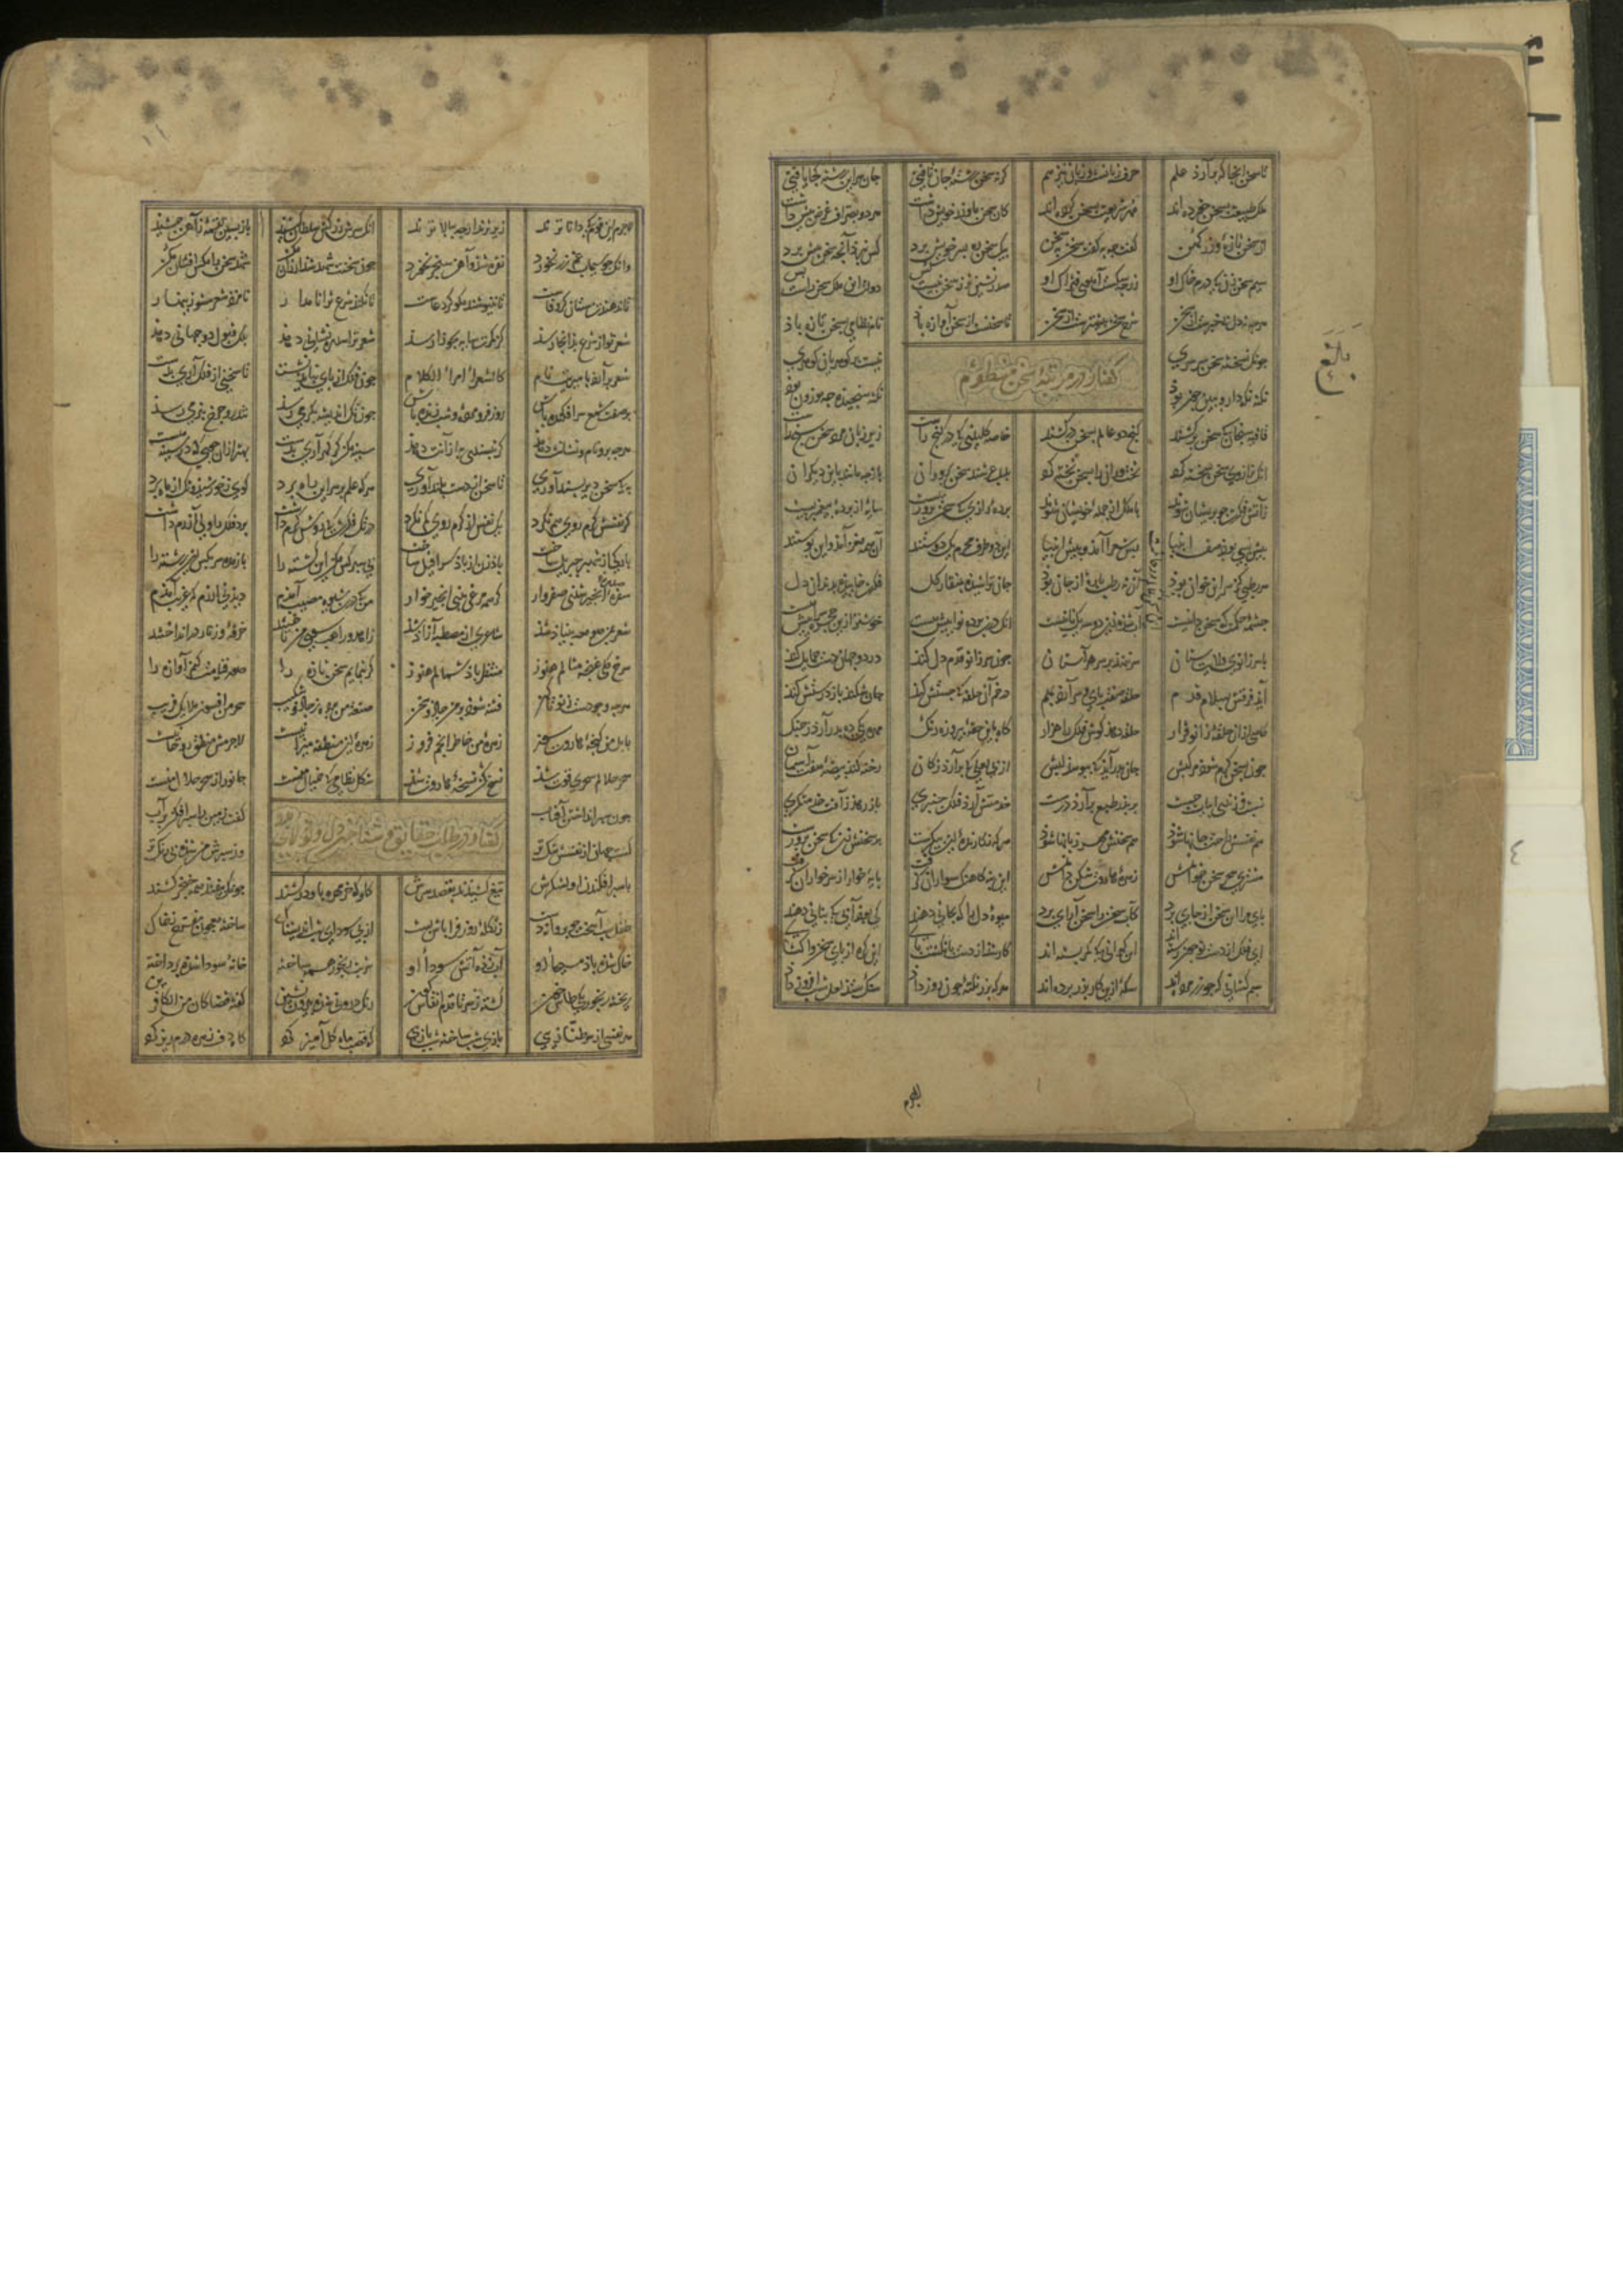 تا سخن آنجا که برآرد علم حرف زیادست و زبان نیز هم گر نه سخن رشته جان تافتی جان سر این رشته کجا یافتی
ملک طبیعت بسخن خورده اند مهر شریعت بسخن کرده اند کان سخن ما و زر خویش داشت هر دو بصراف پیش داشت
کز سخن تازه و زر کهن گفت چه به گفت سخن به سخن پیک سخن ره بسر خویش برد کس نبرد آنچه سخن پیش برد
سیم سخن زن که درم خاک او زر چه سگست آهوی فتراک او صدرنشین تر ز سخن نیست کس دولت این ملک سخن راست بس
هرچه نه دل بی خبرست از سخن شرح سخن بیشترست از سخن تا سخنست از سخن آوازه باذ نام نظامی بسخن تازه باذ
گفتار در مرتبه سخن منظوم
چونکه نسخته سخن سرسری هست بر گوهریان گوهری
نکته نگه دار ببین چون بوذ نکته که سنجیده و موزون بوذ
قافیه سنجان که سخن برکشند گنج دو عالم بسخن درکشند خاصه کلیدی که در گنج راست زیر زبان مرد سخن سنج راست
آنک ترازوی سخن سخته کرد بختوران را بسخن بخته کرد بلبل عرشند سخن پروران باز چه مانند بدیگران
ز آتش فکرت چو پریشان شوند با ملک از جمله خویشان شوند پرده رازی که سخن پروریست سایه از پرده پیغمبریست
پیش و پسی صف پس شعرا آمد و پیش انبیا این دو محرم یک دوستند آن همه مغز آمد و این پوستند
هر رطبی کز سر این خوان بوذ آن نه رطب پاره از جان بوذ جان تراشیده بمنقار گل فکرت خاییده بدندان دل
چشمه حکمت که سخن دانیست آب شده زین دو سه یک نانیست آنک درین پرده نوائیش هست خوشتر ازین حجره سرائیش هست
با سر زانوی ولایت ستان سر ننهد بر سر هر آستان چون سر زانو قدم دل کند در دو جهان دست حمایل کند
آید فرقش بسلام قدم حلقه صفت پای و سر آرد بهم در خم آن حلقه که چستش کند جان شکند باز درستش کند
گاهی از آن حلقه زانو قرار حلقه نهد گوش فلک را هزار گاه بدین حقه پیروزه رنگ مهره یکی ده بدر آرد ز چنگ
چون بسخن گرم شود مرکبش جان بلب آید که ببوسد لبش از پی لعلی که برآرد ز کان رخنه کند بیضه هفت آسمان
نسبت فرزندی ابیات چست بر پدر طبع برآرد درست خدمتش آرد فلک چنبری باز رهد ز آفت خدمتگری
هم نفسش راحت جانها شوذ هم سخنش مهر زبانها شوذ هر که نگارنده این پیکرست بر سخنش زن که سخن پرورست
مشتری سحر سخن خوانمش زهره هاروت شکن دانمش این بنه کاهنگ سواران گرفت پایه خوار از سر خواران گرفت
پای مرا این سخن از جای برد کاب سخن را سخن آرای برد میوه دل را که بجانی دهند کی بوذ آبی که بنانی دهند
ای فلک از دست تو چون رسته اند این گرهائی که کمر بسته اند کار شد از دست بانگشت پای این گره از پای سخن وا گشای
سیم کشانی که چو زر مرده اند سکه ازین کار بزر برده اند هر که بزر نکته چون روز داد سنگ ستد لعل شب افروز داد
بالغ
لاجرم
لاجرم این قوم که دانا ترند زیر ترند ارچه ببالا ترند آنک سرش زر کش سلطان کشید باز پسین لقمه ز آهن چشید
وانک چو سیماب غم زر نخورد نقره شد و آهن سنجر نخورد چون سخنت شهد شد ارزان مکن شهد سخن را مگس افشان مکن
تا ندهندت مستان گر وفاست تا ننیوشند مگو گر دعاست تا نکند شرع ترا نامدار نامزد شعر مشو زینهار
شعر تو از شرع بدانجا رسذ کز کمرت سایه بجوزا رسذ شعر ترا سدره نشانی دهذ ملک قبول دو جهانی دهذ
شعر برآرد بامیریت نام کالشعرا امراء الکلام چون فلک از پای نباید نشست تا سخنی از فلک آری بدست
بر صفت شمع سرافکنده باش روز فرو مرده و شب زنده باش چون تک اندیشه بگرمی رسذ تندرو چرخ بنرمی رسذ
هرچه برو نام و نشانت دهند گر نپسندی به از آنت دهند سینه مکن گر گهر آری بدست بهتر ازان جوی که در سینه هست
به که سخن دیر پسند آوری تا سخن از دست بلند آوری هر که علم بر سر این راه برد گوی ز خورشید و تک از ماه برد
گر نفسش گرم روی هم نکرد یک نفس از گرم روی کم نکرد در تک فکرت که روش گرم داشت برد فلک را ولی آزرم داشت
بارگی از شهپر جبریل ساخت باذ زن از باذ سرافیل ساخت پی سپر کس مکن این کشته را باز مده سر بکس این رشته را
سفره انجیر شدی صفروار گر همه مرغی بدی انجیر خوار من که درین شیوه مصیب آمدم دیدنی ارزم که غریب آمدم
شعر بمن صومعه بنیاذ شذ شاعری از مصطبه آزاذ شذ زاهد و راهب سوی من تاختند خرقه و زنار در انداختند
سرخ گلی غنچه مثالم هنوز منتظر باذ شمالم هنوز گر بنمایم سخن تازه را صور قیامت کنم آوازه را
هرچه وجودست ز نو تا کهن فتنه شوذ بر من جادو سخن صنعت من برده ز جادو شکیب سحر من افسون ملایک فریب
بابل من گنجه هاروت سوز زهره من خاطر انجم فروز زهره این منطقه میزانیست لاجرمش منطق روحانیست
سحر حلالم سحری قوت شذ نسخ کن نسخه هاروت شذ شکل نظامی که خیال منست جانور از سحر حلال منست
چون سپر انداختن آفتاب گفت زمین را سپر افکن بر آب
گفتار در طلب حقایق و شناختن دل
گشت جهان از نفسش تنگ تر وز سپرش من شده بی رنگ تر
با سپر افکندن او لشکرش تیغ کشیدند بقصد سرش گاو که خرمهره بدو درکشند چونک بیفتد همه خنجر کشند
طفل شب آهیخت چو در دایه دست زنگله روز فرا پاش بست از پی سودای شب اندیشناک ساخته معجون مفرح ز خاک
خاک شده باذ مسیحای او آب زده آتش سودای او شربت و رنجور بهم ساخته خانه سودا شده پرداخته
ریخته رنجور یکی طاس خون گشته ز سر تا قدم انقاس گون رنگ درونی شده بیرون نشین گفته قضا کان من الکافرین
هر نفسی از سر طنازیی بازی شب ساخته شب بازیی گه قصب ماه گل آمیز کرد گاه دف زهره درم ریز کرد